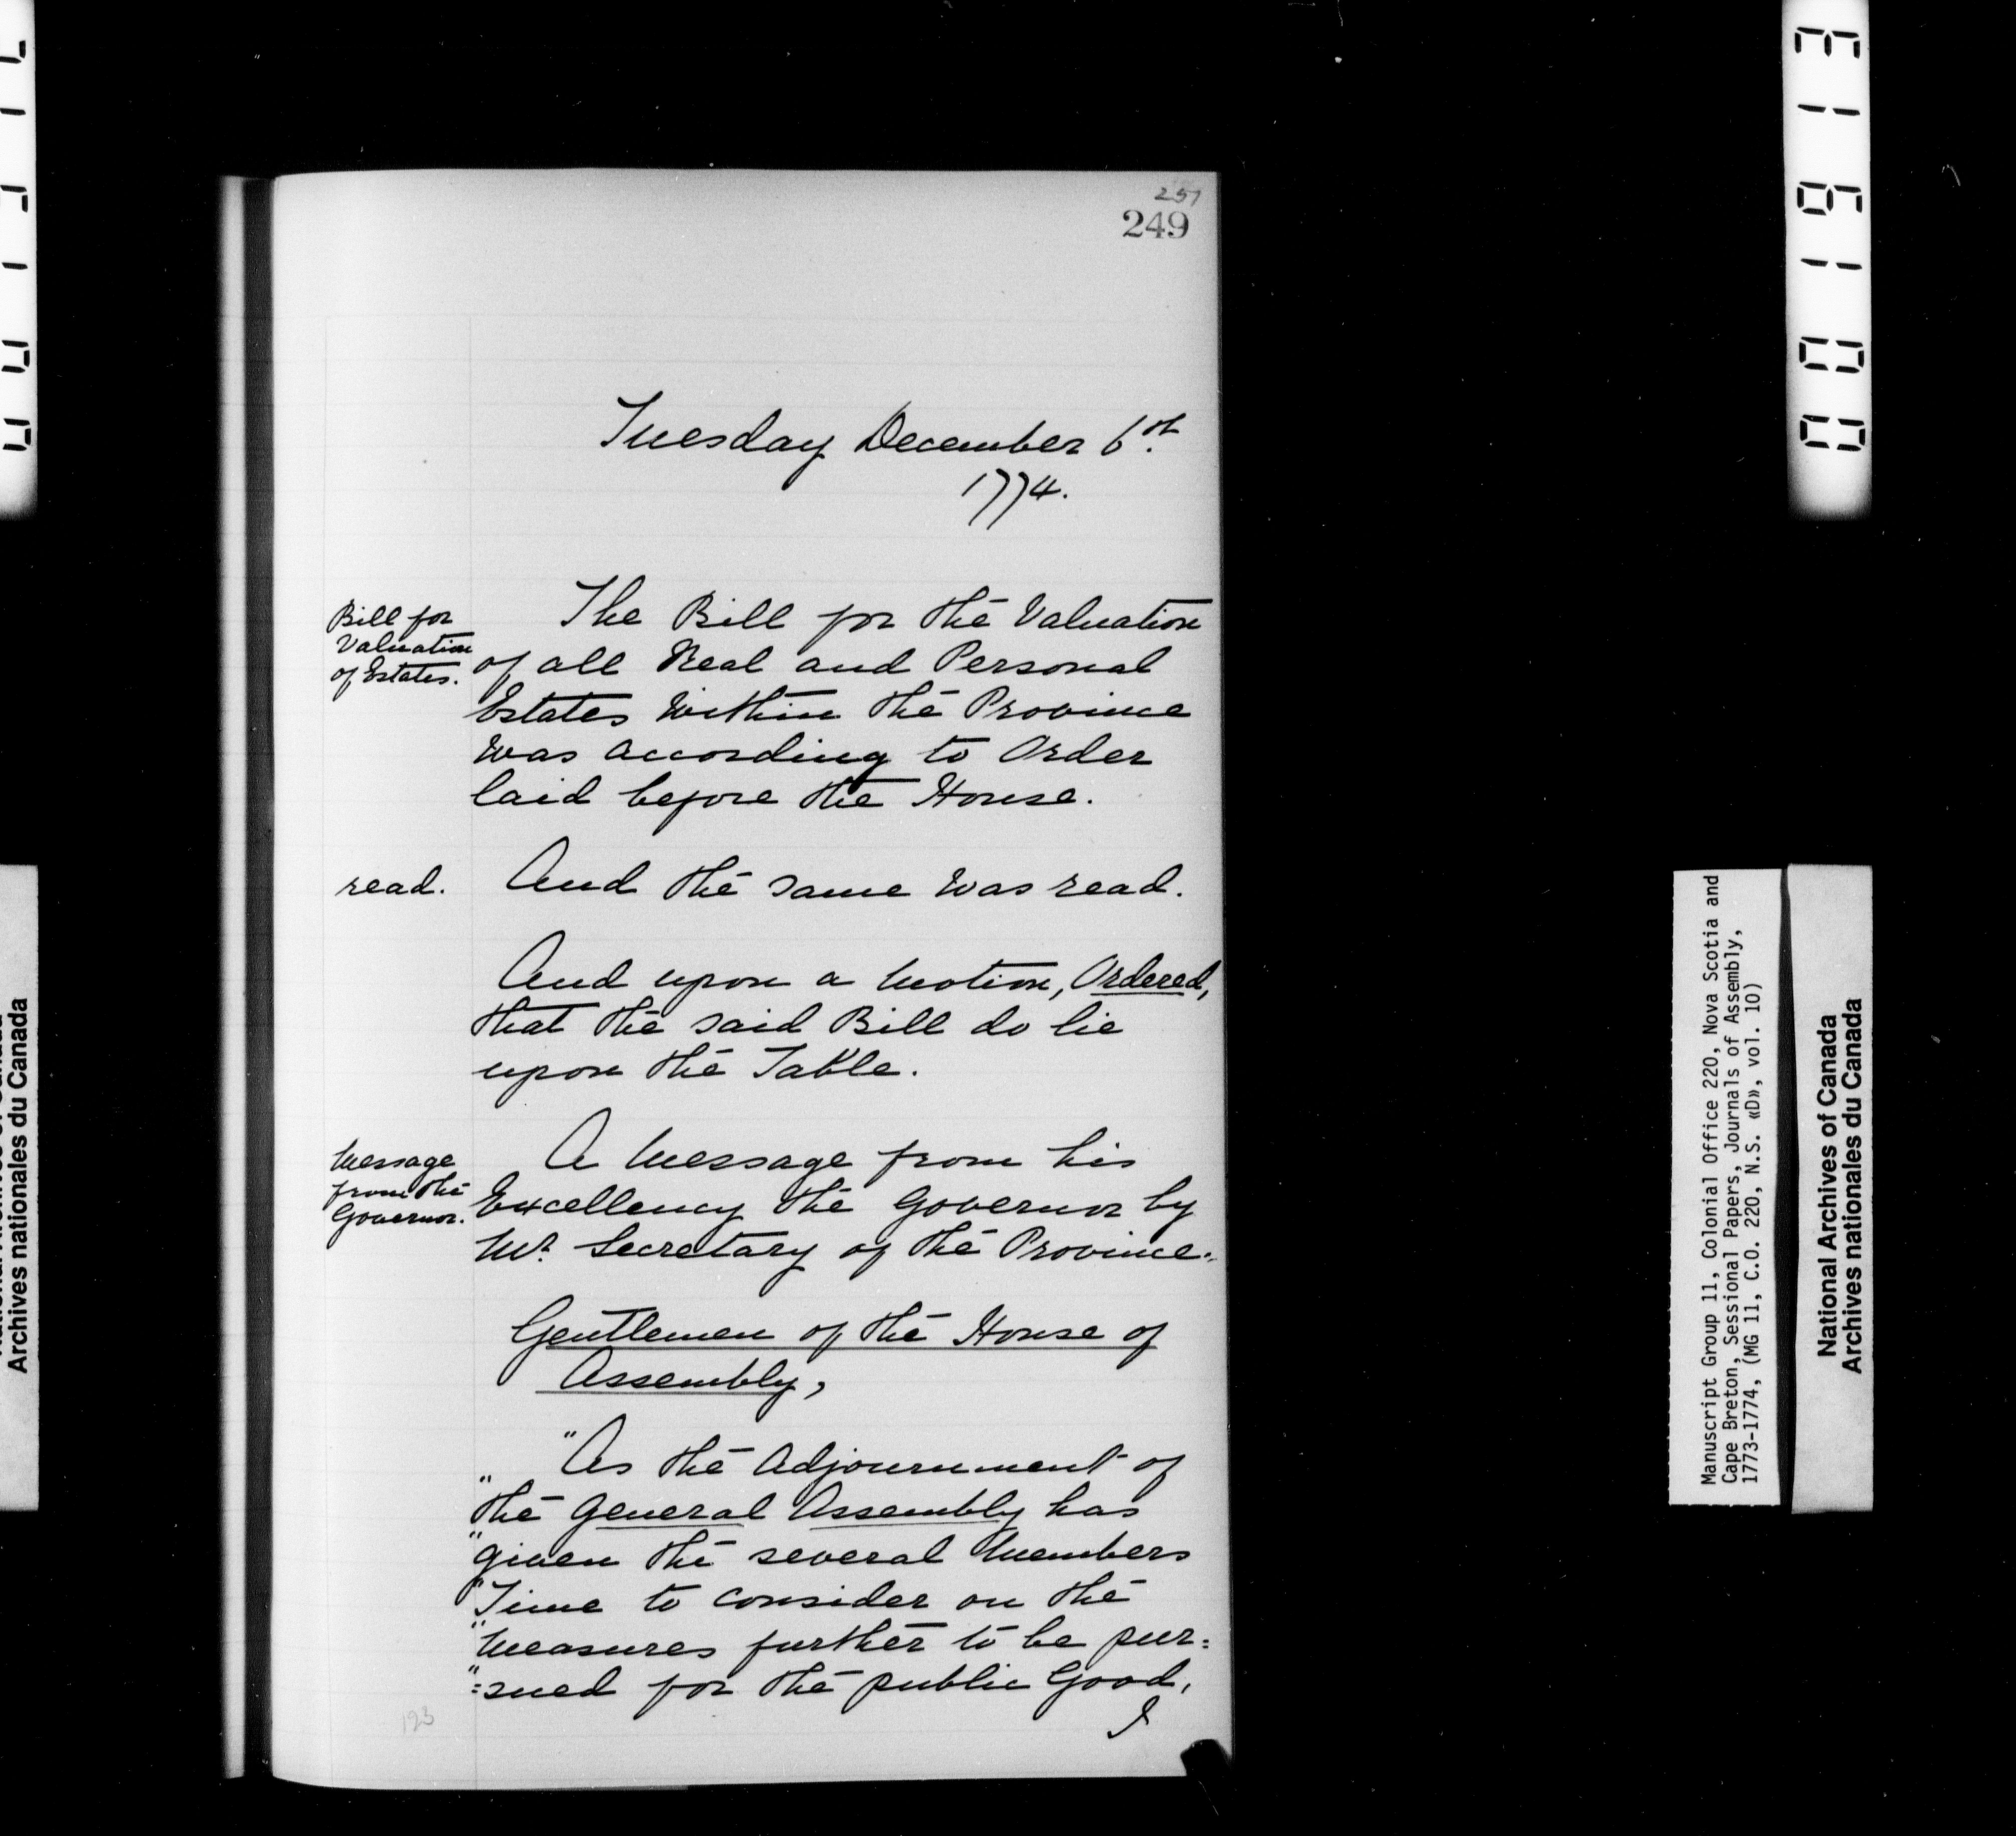 251
249
Tuesday December 6th.
1774.
Bill for
Valuation
of Estates.
The Bill for the Valuation
of all Real and Personal
Estates Within the Province
Was according to Order
laid before the House.
read.
And the same Was read.
And upon a Motion, Ordered,
that the said Bill do lie
upon the Table.
Message
from the
Governor.
A Message from his
Excellency the Governor by
Mr. Secretary of the Province.
Gentlemen of the House of
Assembly,
"As the Adjournment of
"the General Assembly has
"given the several Members
"Time to consider on the
"Measures further to be pur=
"=sued for the public Good,
I
123
Manuscript Group 11, Colonial Office 220, Nova Scotia and
Cape Breton, Sessional Papers, Journals of Assembly,
1773-1774, (MG 11, C.O. 220, N.S. «D», vol. 10)
National Archives of Canada
Archives nationales du Canada
Archives nationales du Canada